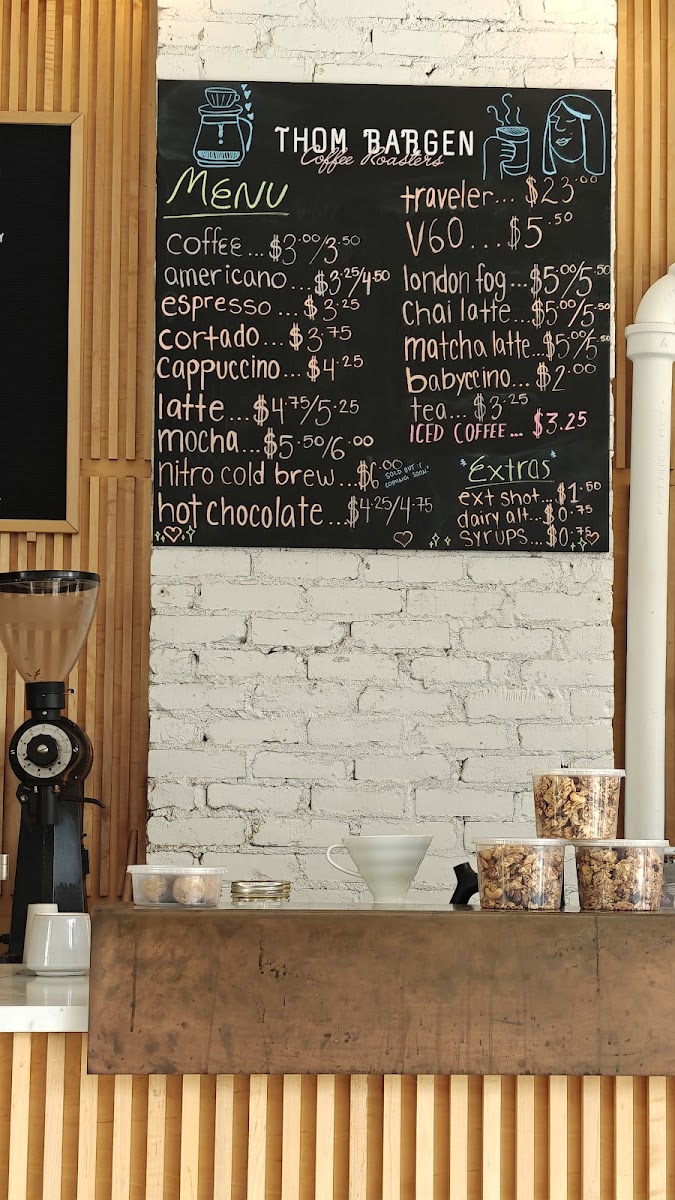 THOM BARGEN
Coffee Roasters
MENU
coffee...$3.00/3.50
americano...$3.25/4.50
espresso...$3.25
cortado...$3.75
cappuccino...$4.25
latte...$4.75/5.25
mocha...$5.50/6.00
nitro cold brew...$6.00
SOLD OUT :(
COMING SOON
hot chocolate...$4.25/4.75
traveler...$23.00
V60...$5.50
london fog...$5.00/5.50
chai latte...$5.00/5.50
matcha latte...$5.00/5.50
babyccino...$2.00
tea...$3.25
ICED COFFEE...$3.25
*Extras*
ext shot...$1.50
dairy alt...$0.75
syrups...$0.75
Y